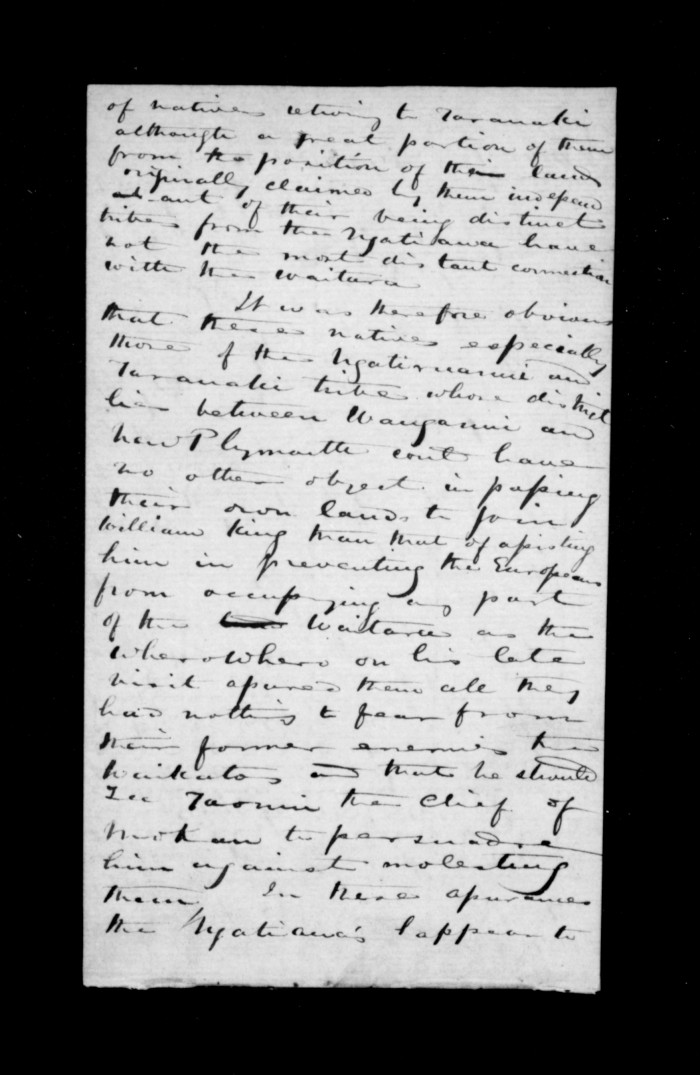 of natives retiring to Taranaki
although a great portion of them
from the position of their lands
originally claimed by them independ
-ant of their being distinct
tribes from the Ngatiawa have
not the most distant connection
with the Waitara
It was therefore obvious
that these natives especially
those of the Ngatiruanui and
Taranaki tribe whose district
lies between Wanganui and
New Plymouth could have
no other object in passing
their own lands to join
William King than that of assisting
him in preventing the Europeans
from occupying any part
of the Waitara as the
Wherowhero on his late
visit assured them all they
had nothing to fear from
their former enemies the
Waikatos and that he should
see Taonui the Chief of
Mokau to persuade
him against molesting
them In these assurances
the Ngatiawa's appear to